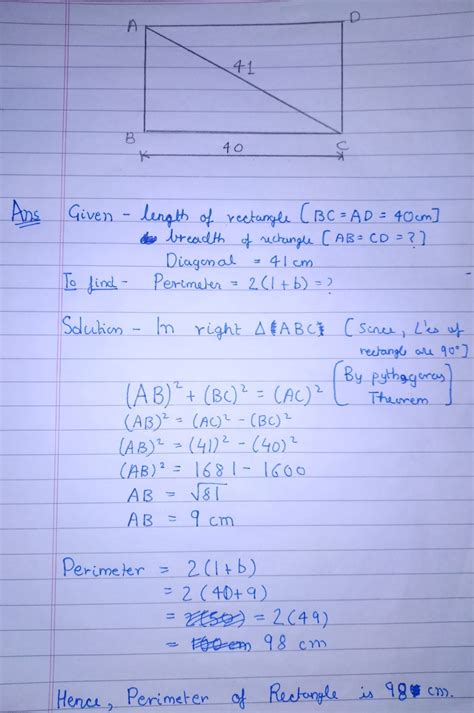 A D
41
B C
40
Ans Given - length of rectangle [BC = AD = 40cm]
breadth of rectangle [AB = CD = ?]
Diagonal = 41 cm
To find - Perimeter = 2(l+b) = ?
Solution - In right Δ ABC [Since, L'es of
rectangle are 90°]
(AB)² + (BC)² = (AC)² [By pythagoras
Theorem]
(AB)² = (AC)² - (BC)²
(AB)² = (41)² - (40)²
(AB)² = 1681 - 1600
AB = √81
AB = 9 cm
Perimeter = 2(l+b)
= 2(40+9)
= 2(50) = 2(49)
= 100 cm 98 cm
Hence, Perimeter of Rectangle is 98 cm.